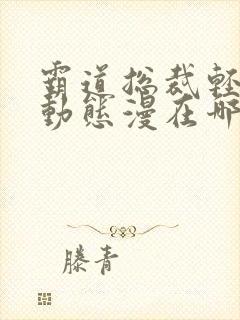 霸道总裁轻
動態漫在哪
滕青